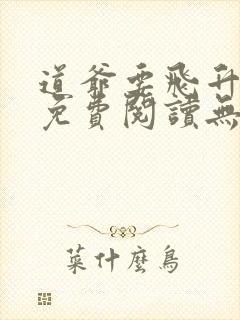 道爺要飛升
免費閱讀無
菜什麼鳥